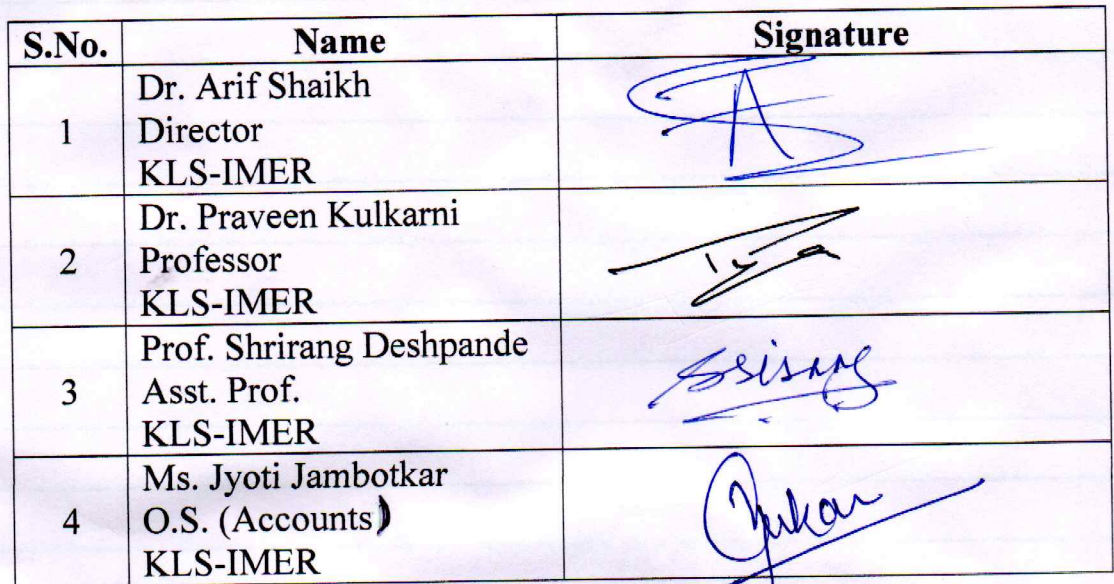 S.No. Name Signature
Dr. Arif Shaikh
1 Director
KLS-IMER
Dr. Praveen Kulkarni
2 Professor
KLS-IMER
Prof. Shrirang Deshpande
3 Asst. Prof.
KLS-IMER
Ms. Jyoti Jambotkar
4 O.S. (Accounts)
KLS-IMER